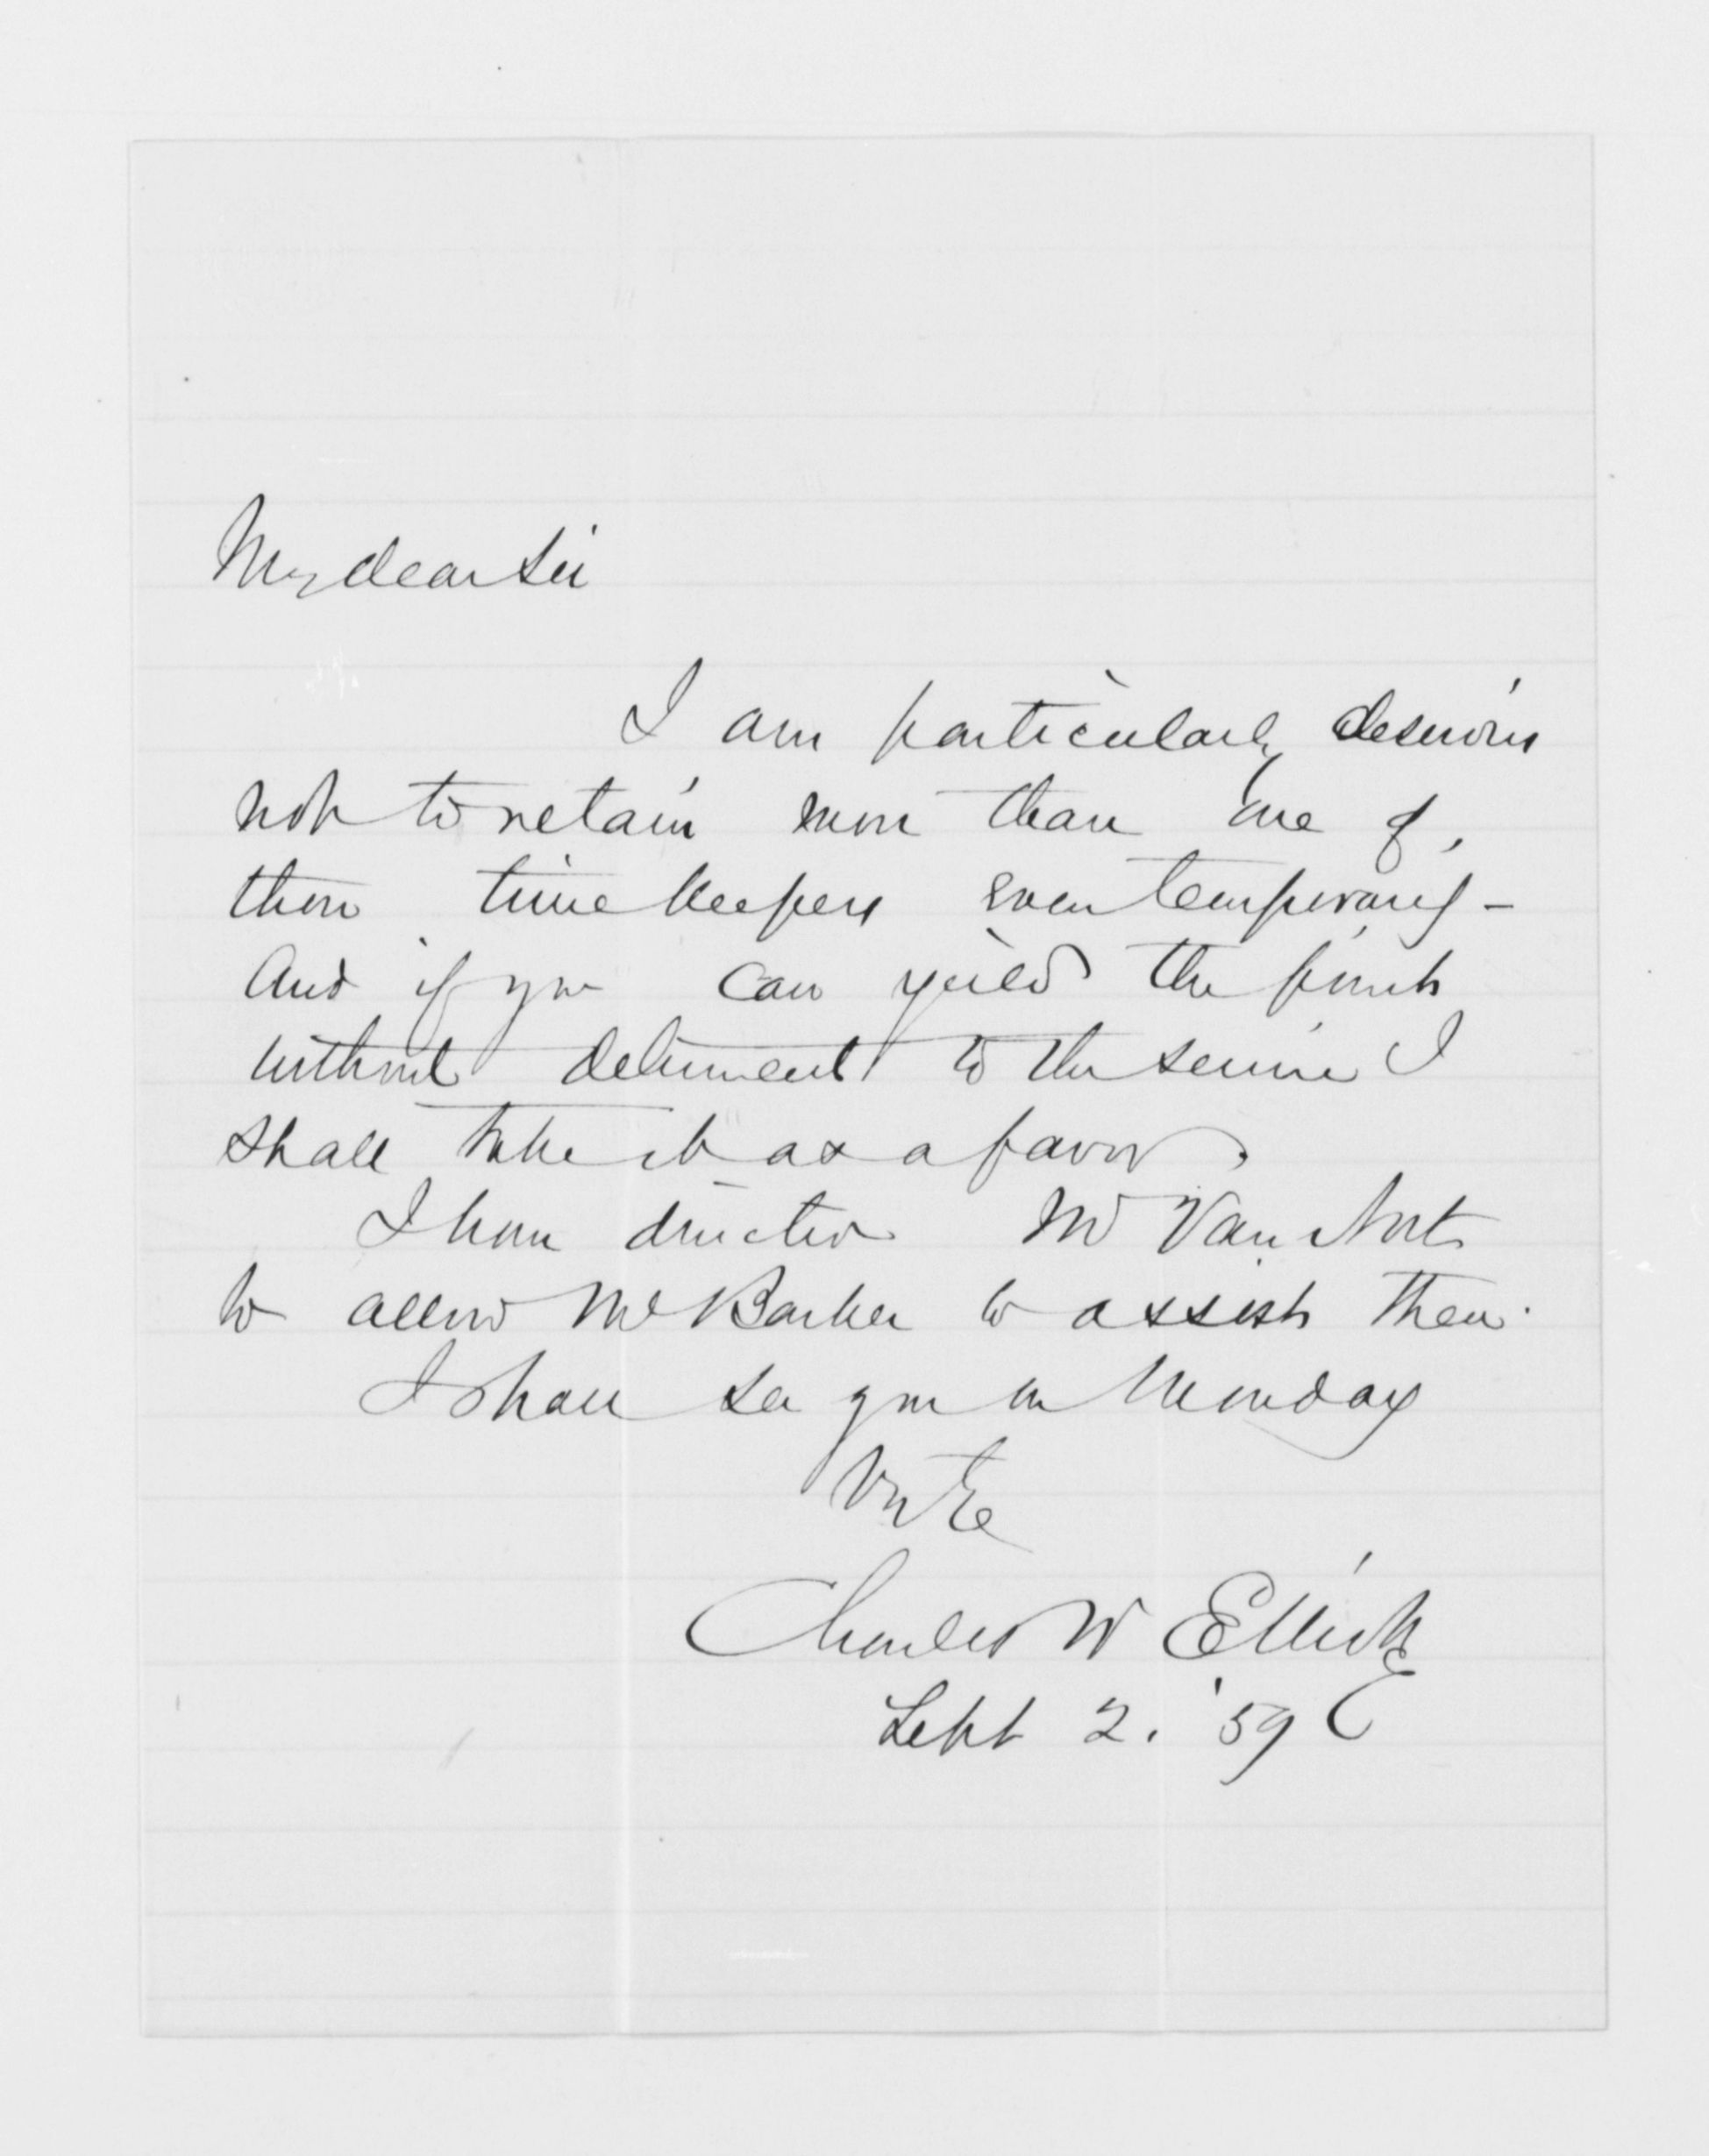 My dear Sir
I am particularly desirous
not to retain more than one of
those time keepers even temporarily -
And if you can yield the point
without detriment to the service I
shall take it as a favor.
I have directed Mr Van Nort
to allow Mr Barker to assist them.
I shall see you on Monday
Charles W Elliott
Sept 2. '59